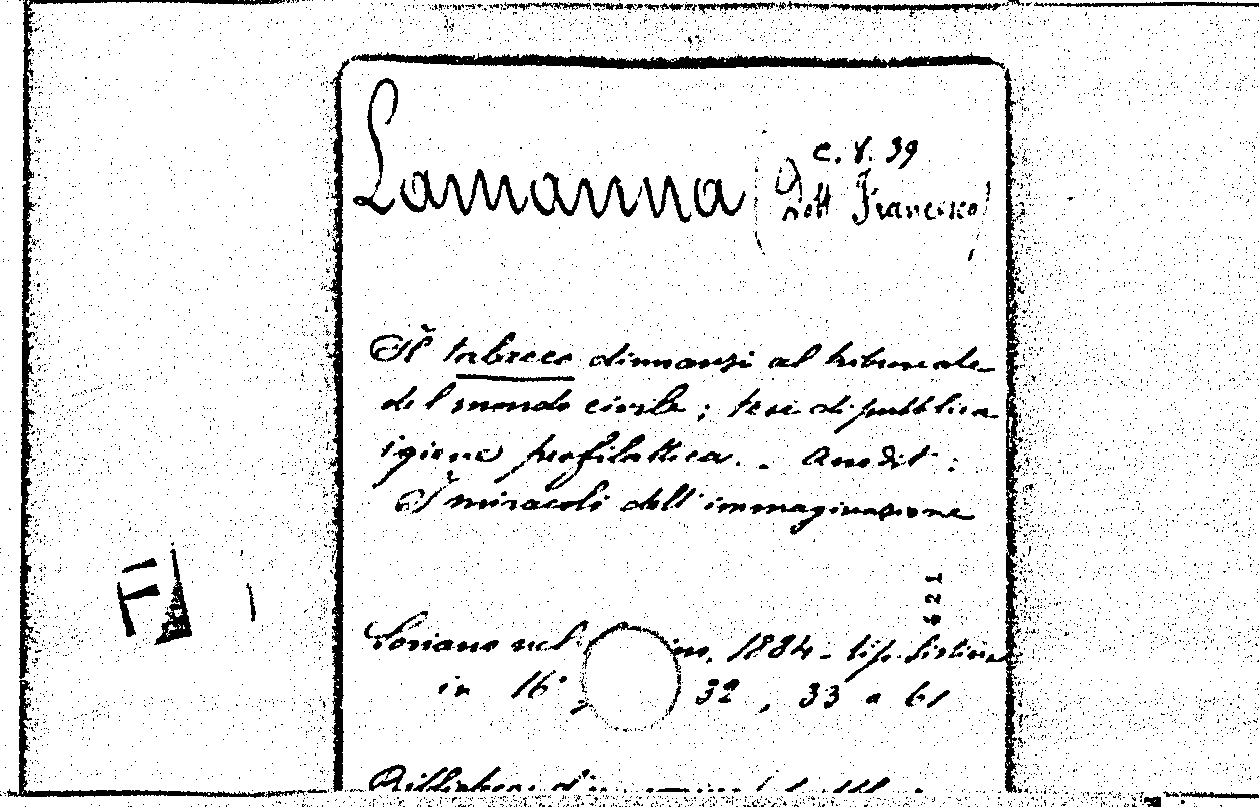 Lamanna (Dott Francesco)
C. V. 39
Il tabacco dinnanzi al tribunale
del mondo civile; tesi di pubblica
igiene profilattica. - Anedit:
I miracoli dell'immaginazione
621
Soriano nel im. 1884 - tip.
in 16° 32, 33 a 61